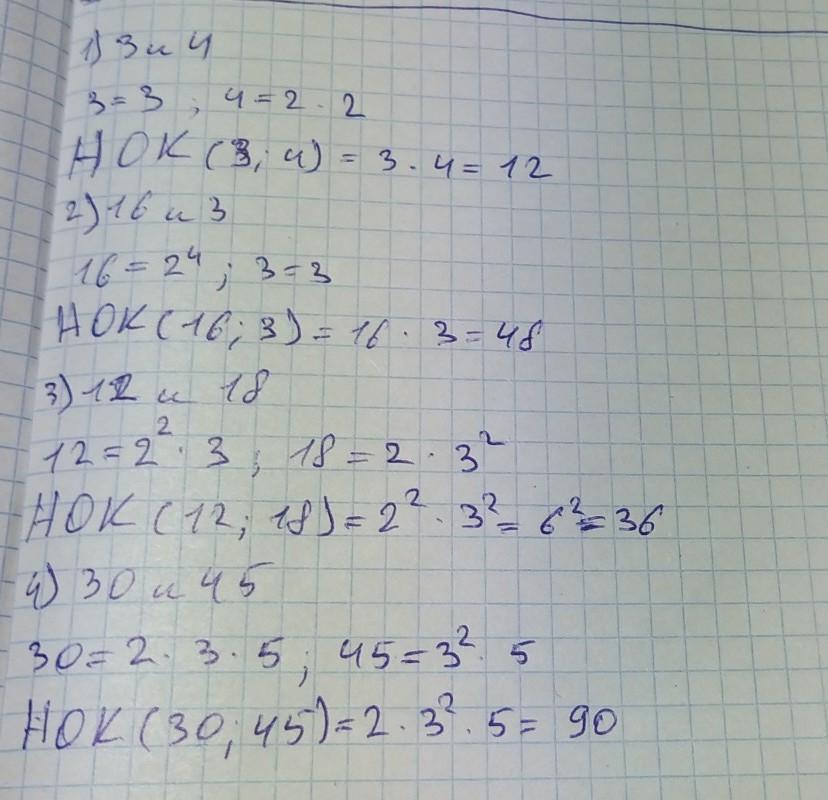 1) 3 и 4
3 = 3 ; 4 = 2 · 2
НОК (3; 4) = 3 · 4 = 12
2) 16 и 3
16 = 2⁴ ; 3 = 3
НОК (16; 3) = 16 · 3 = 48
3) 12 и 18
12 = 2² · 3 ; 18 = 2 · 3²
НОК (12; 18) = 2² · 3² = 6² = 36
4) 30 и 45
30 = 2 · 3 · 5 ; 45 = 3² · 5
НОК (30; 45) = 2 · 3² · 5 = 90